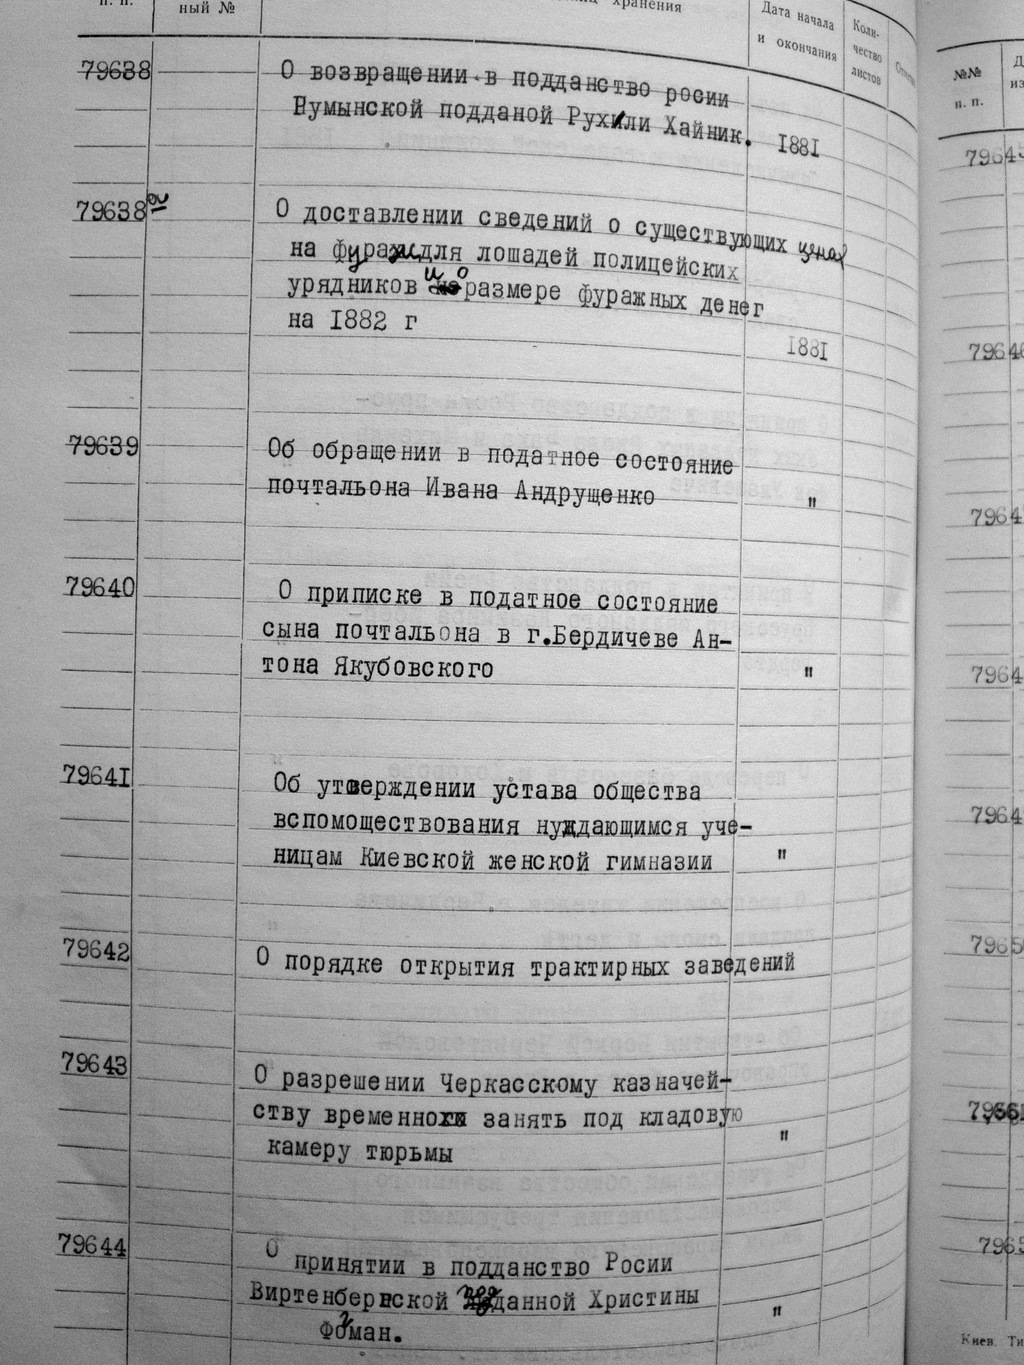 п. п.
ный №
хранения
Дата начала
и окончания
Коли-
чество
листов
79638
О возвращении в подданство росии
Румынской подданой Рухили Хайник.
1881
79638а
О доставлении сведений о существующих ценах
на фураж для лошадей полицейских
урядников и о размере фуражных денег
на 1882 г
1881
79639
Об обращении в податное состояние
почтальона Ивана Андрущенко
"
79640
О приписке в податное состояние
сына почтальона в г.Бердичеве Ан-
тона Якубовского
"
79641
Об утверждении устава общества
вспомоществования нуждающимся уче-
ницам Киевской женской гимназии
"
79642
О порядке открытия трактирных заведений
79643
О разрешении Черкасскому казначей-
ству временно занять под кладовую
камеру тюрьмы
"
79644
О принятии в подданство Росии
Виртенбергской подданной Христины
Фоман.
"
№№
п. п.
79645
79646
7964
7964
7964
7965
7965
Киев. Ти